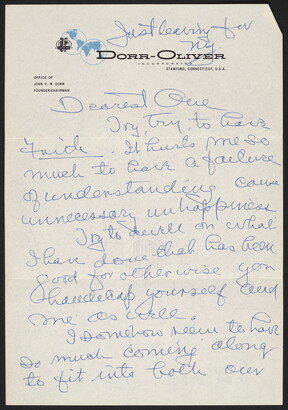 Just leaving for
NY.
DORR-OLIVER
INCORPORATED
STAMFORD, CONNECTICUT, U.S.A.
OFFICE OF
JOHN V. N. DORR
FOUNDER-CHAIRMAN
Dearest One
Try, try, to have
Faith. It hurts me so
much to have a failure
of understanding cause
unnecessary unhappiness
Try to dwell on what
I have done that has been
good for otherwise you
handicap yourself and
me as well.
I somehow seem to have
so much coming along
to fit into both our